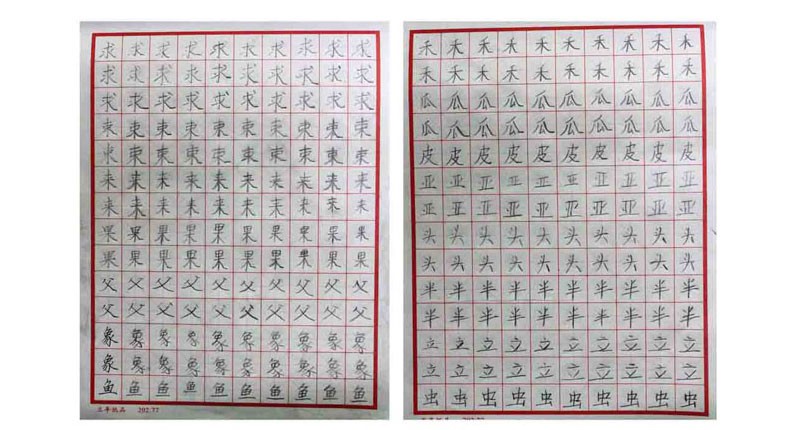 求求求求求求求求求求
求求求求求求求求求求
求求求求求求求求求求
束束束束束束束束束束
束束束束束束束束束束
来来来来来来来来来来
来来来来来来来来来来
果果果果果果果果果果
果果果果果果果果果果
父父父父父父父父父父
父父父父父父父父父父
象象象象象象象象象象
象象象象象象象象象象
鱼鱼鱼鱼鱼鱼鱼鱼鱼鱼
202.77
禾禾禾禾禾禾禾禾禾禾
禾禾禾禾禾禾禾禾禾禾
瓜瓜瓜瓜瓜瓜瓜瓜瓜瓜
瓜瓜瓜瓜瓜瓜瓜瓜瓜瓜
皮皮皮皮皮皮皮皮皮皮
亚亚亚亚亚亚亚亚亚亚
亚亚亚亚亚亚亚亚亚亚
头头头头头头头头头头
头头头头头头头头头头
半半半半半半半半半半
半半半半半半半半半半
立立立立立立立立立立
立立立立立立立立立立
虫虫虫虫虫虫虫虫虫虫